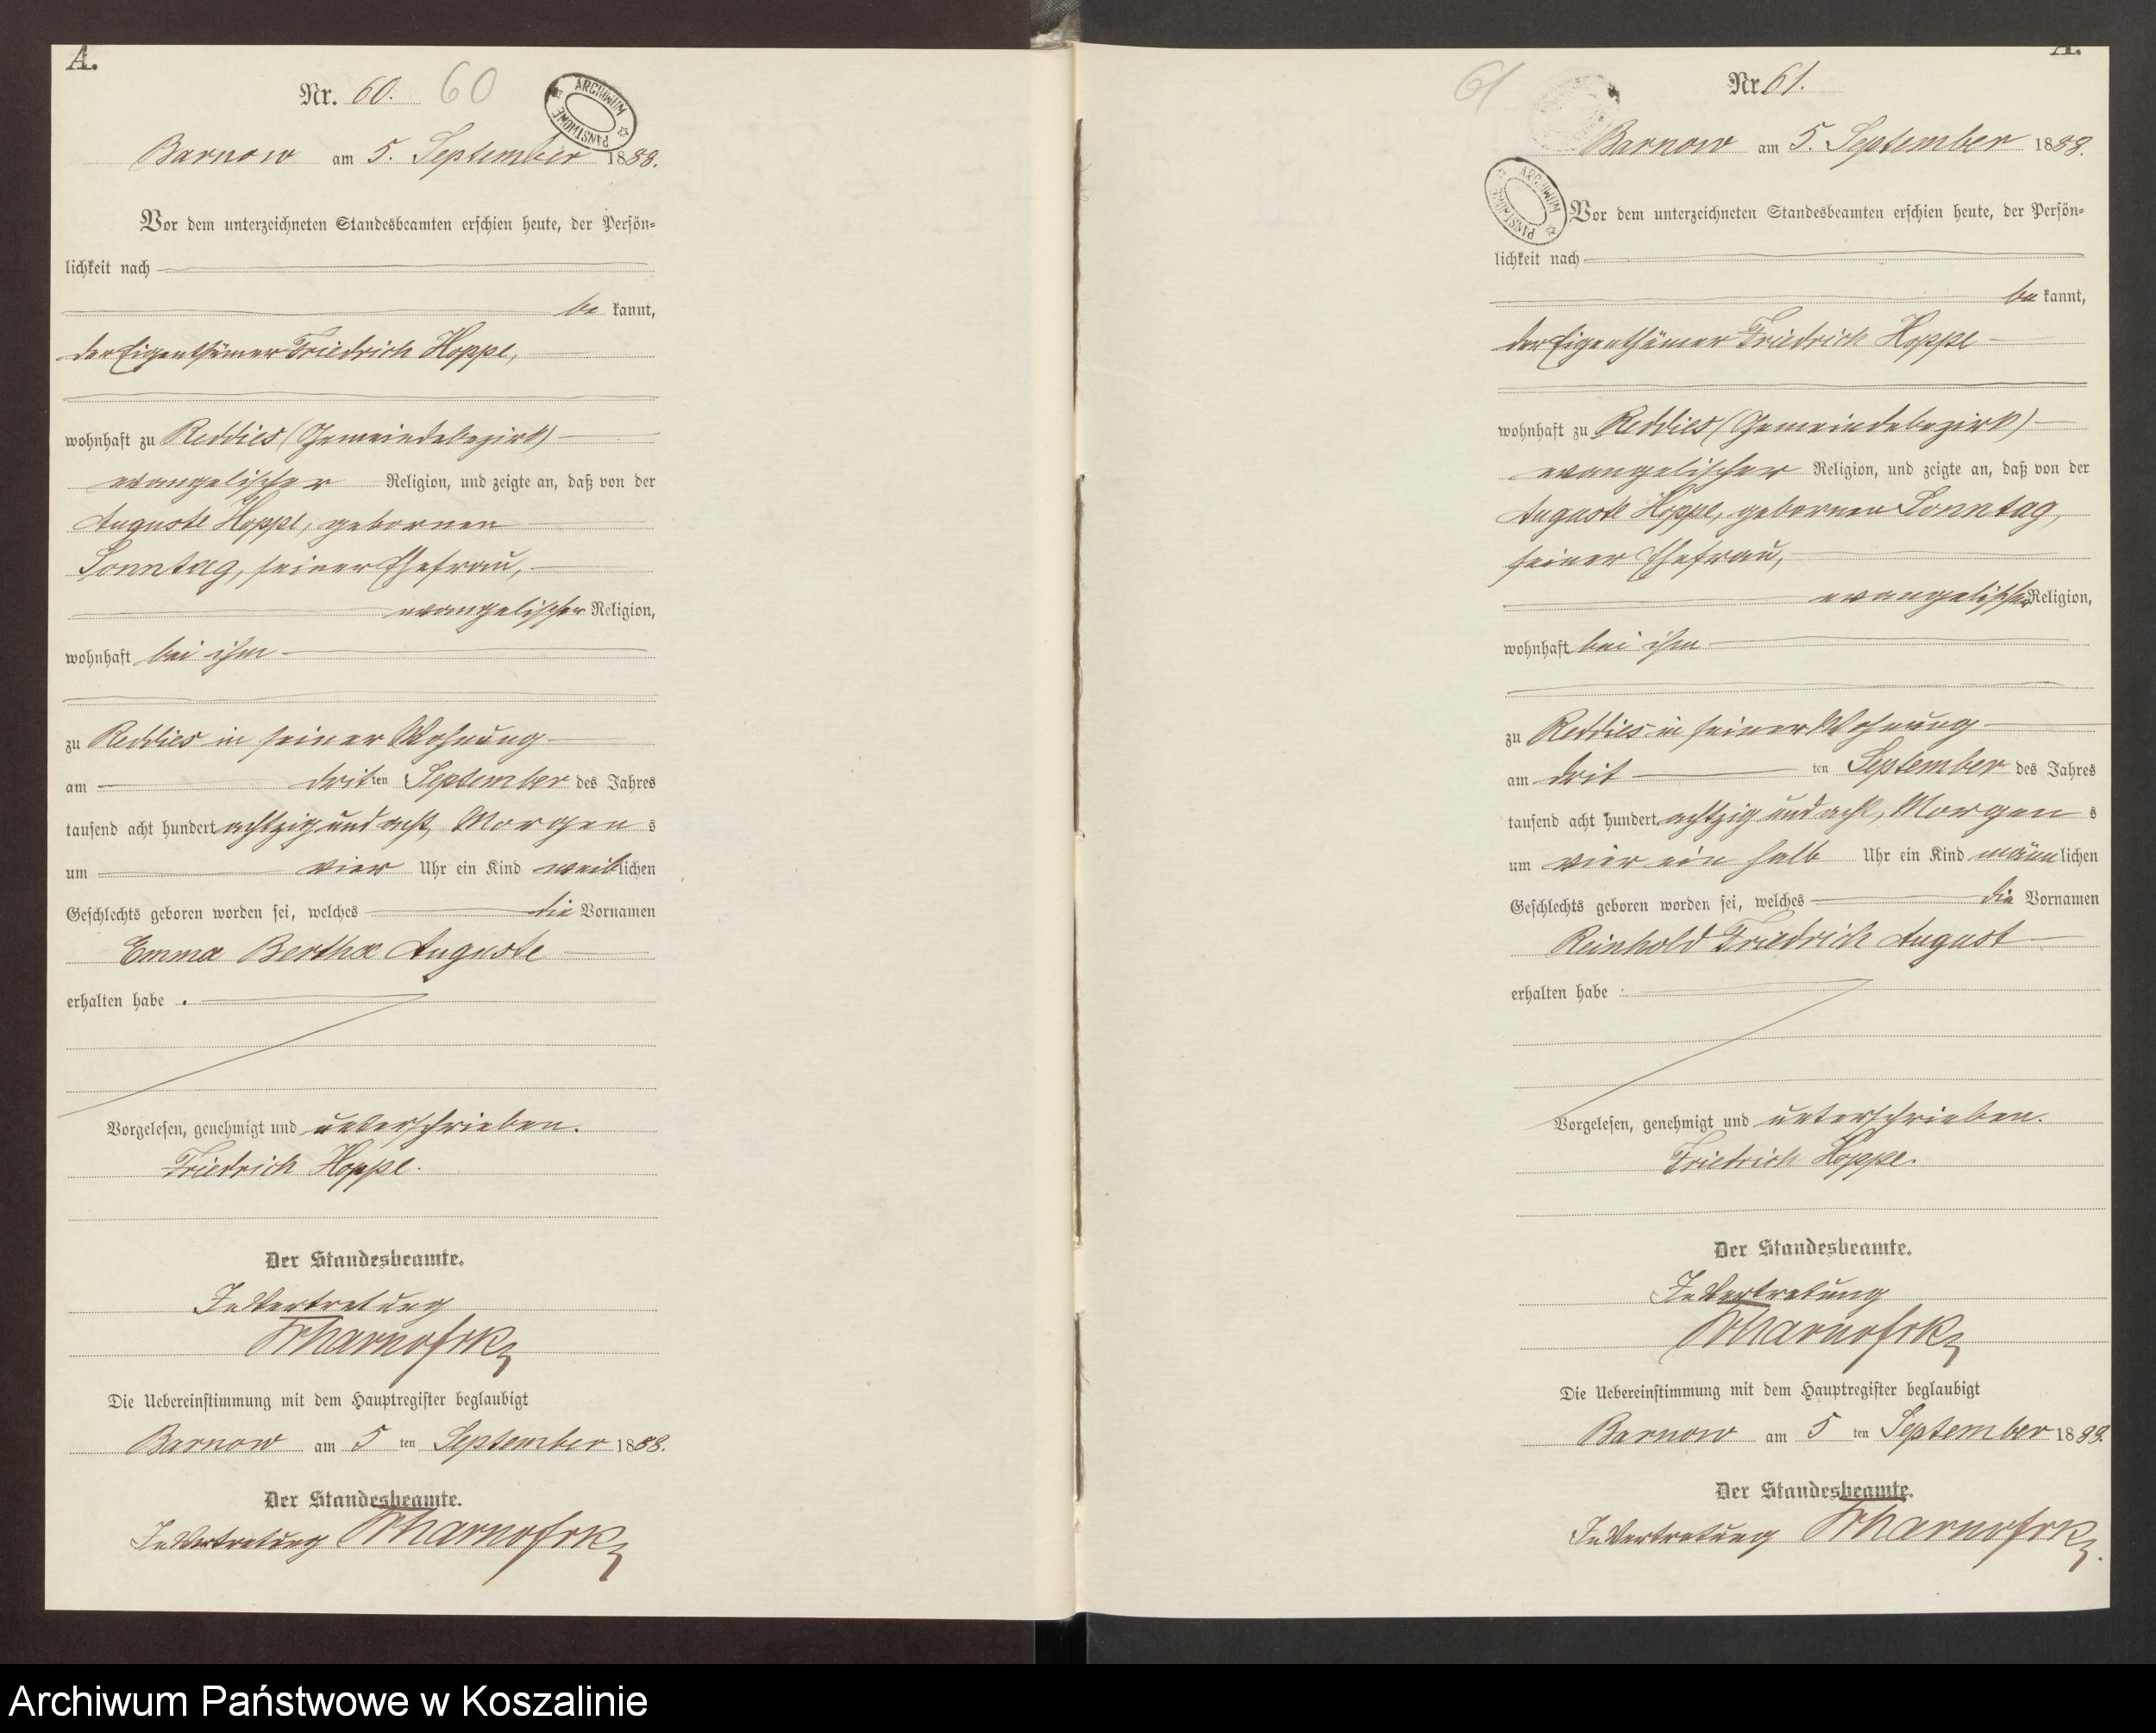 A.
Nr. 60. 60
ARCHIWUM PAŃSTWOWE
Barnow am 5. September 1888.
Vor dem unterzeichneten Standesbeamten erschien heute, der Persön-
lichkeit nach
be kannt,
der Eigenthümer Friedrich Hoppe,
wohnhaft zu Reddies (Gemeindebezirk)
evangelischer Religion, und zeigte an, daß von der
Auguste Hoppe, gebornen
Sonntag, seiner Ehefrau,
evangelischer Religion,
wohnhaft bei ihm
zu Reddies in seiner Wohnung
am drit ten September des Jahres
tausend acht hundert achtzig und acht, Morgen s
um vier Uhr ein Kind weib lichen
Geschlechts geboren worden sei, welches die Vornamen
Emma Bertha Auguste
erhalten habe .
Vorgelesen, genehmigt und unterschrieben.
Friedrich Hoppe.
Der Standesbeamte.
In Vertretung
Die Uebereinstimmung mit dem Hauptregister beglaubigt
Barnow am 5 ten September 1888.
Der Standesbeamte.
In Vertretung
A.
61 Nr. 61.
Barnow am 5. September 1888.
ARCHIWUM PAŃSTWOWE
Vor dem unterzeichneten Standesbeamten erschien heute, der Persön-
lichkeit nach
be kannt,
der Eigenthümer Friedrich Hoppe
wohnhaft zu Reddies (Gemeindebezirk)
evangelischer Religion, und zeigte an, daß von der
Auguste Hoppe, gebornen Sonntag,
seiner Ehefrau,
evangelischer Religion,
wohnhaft bei ihm
zu Reddies in seiner Wohnung
am drit ten September des Jahres
tausend acht hundert achtzig und acht, Morgen s
um vier ein halb Uhr ein Kind männ lichen
Geschlechts geboren worden sei, welches die Vornamen
Reinhold Friedrich August
erhalten habe .
Vorgelesen, genehmigt und unterschrieben.
Friedrich Hoppe.
Der Standesbeamte.
In Vertretung
Die Uebereinstimmung mit dem Hauptregister beglaubigt
Barnow am 5 ten September 1888.
Der Standesbeamte.
In Vertretung
Archiwum Państwowe w Koszalinie